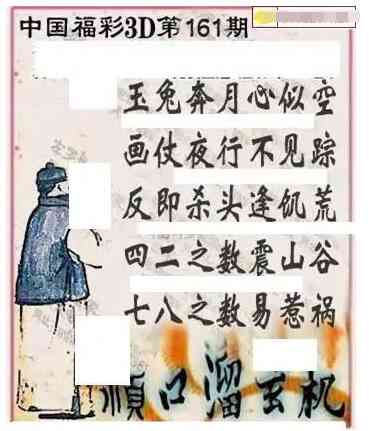 中国福彩3D第161期
玉兔奔月心似空
画仗夜行不见踪
反即杀头逢饥荒
四二之数震山谷
七八之数易惹祸
顺口溜玄机